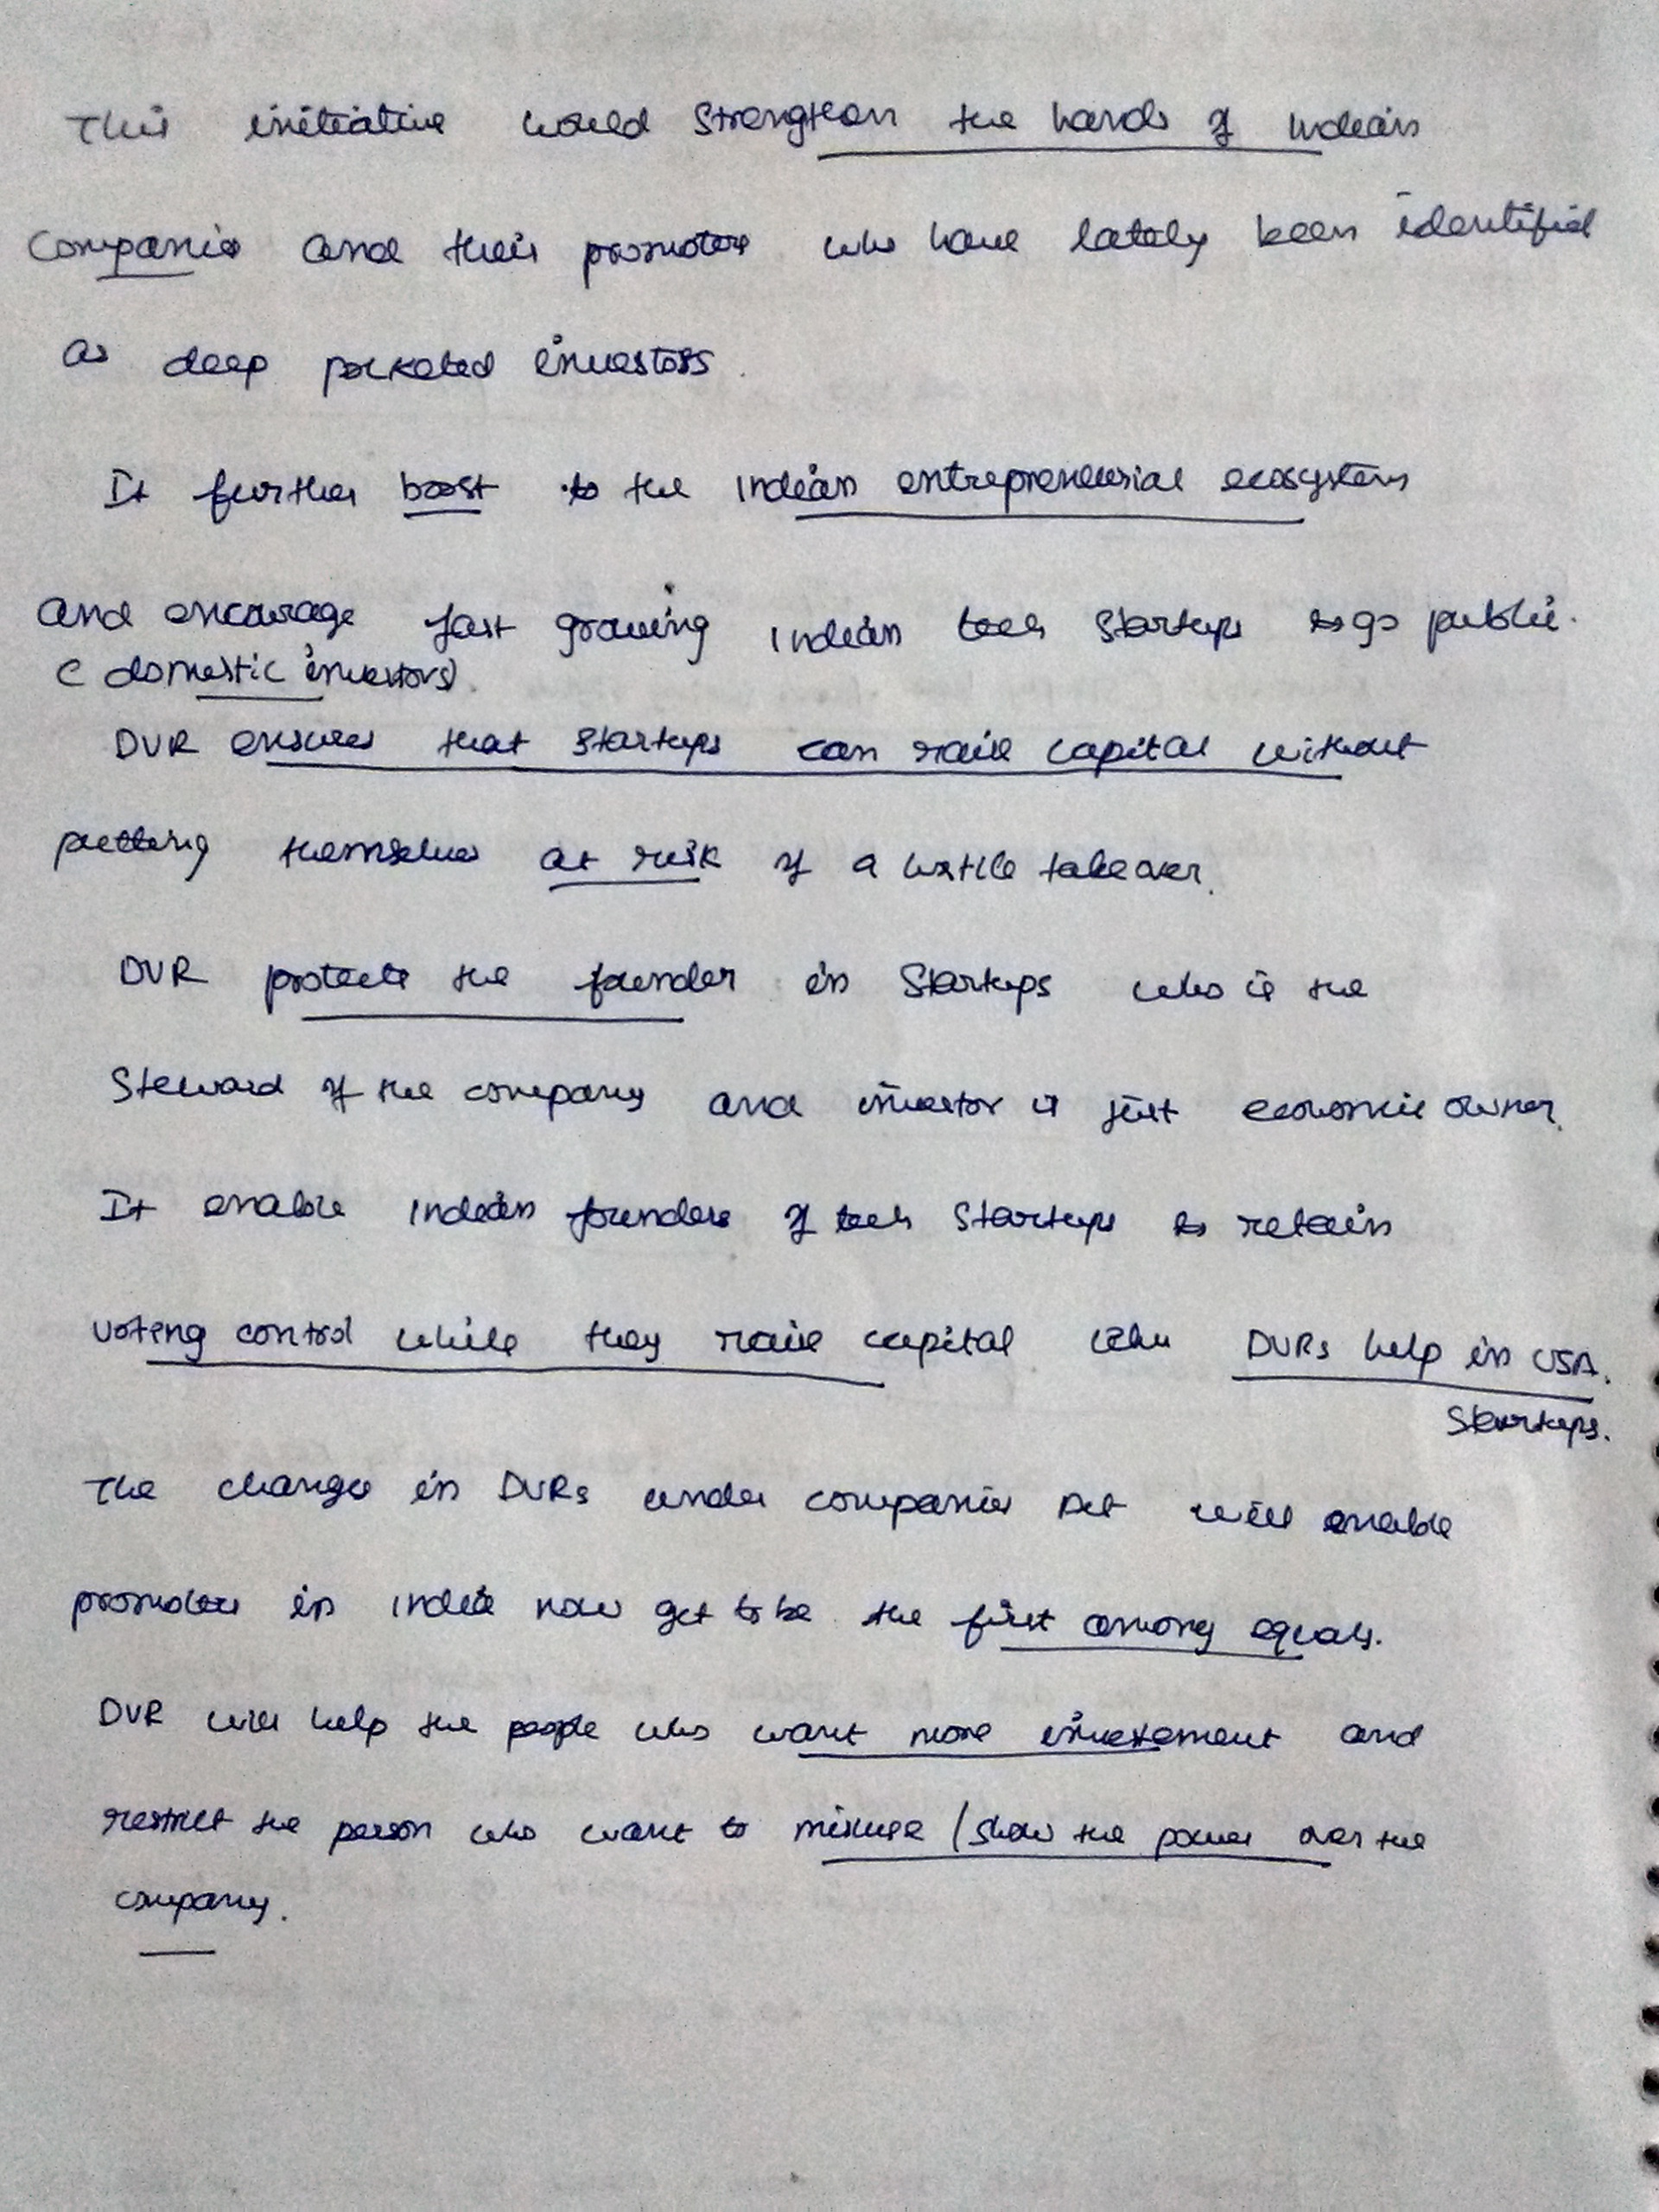 This initiative would strengthen the hands of Indian
Companies and their promoters who have lately been identified
as deep pocketed investors.
It further boost to the Indian entrepreneurial ecosystem
and encourage fast growing Indian tech startups to go public.
( domestic investors).
DVR ensures that startups can raise capital without
putting themselves at risk of a hostile takeover.
DVR protects the founder in Startups who is the
Steward of the company and investor is just economic owner.
It enable Indian founders of tech startups to retain
voting control while they raise capital like DVRs help in USA.
Startups.
The changes in DVRs under companies Act will enable
promoters in India now get to be the first among equals.
DVR will help the people who want more investement and
restrict the person who want to misuse / show the power over the
company.